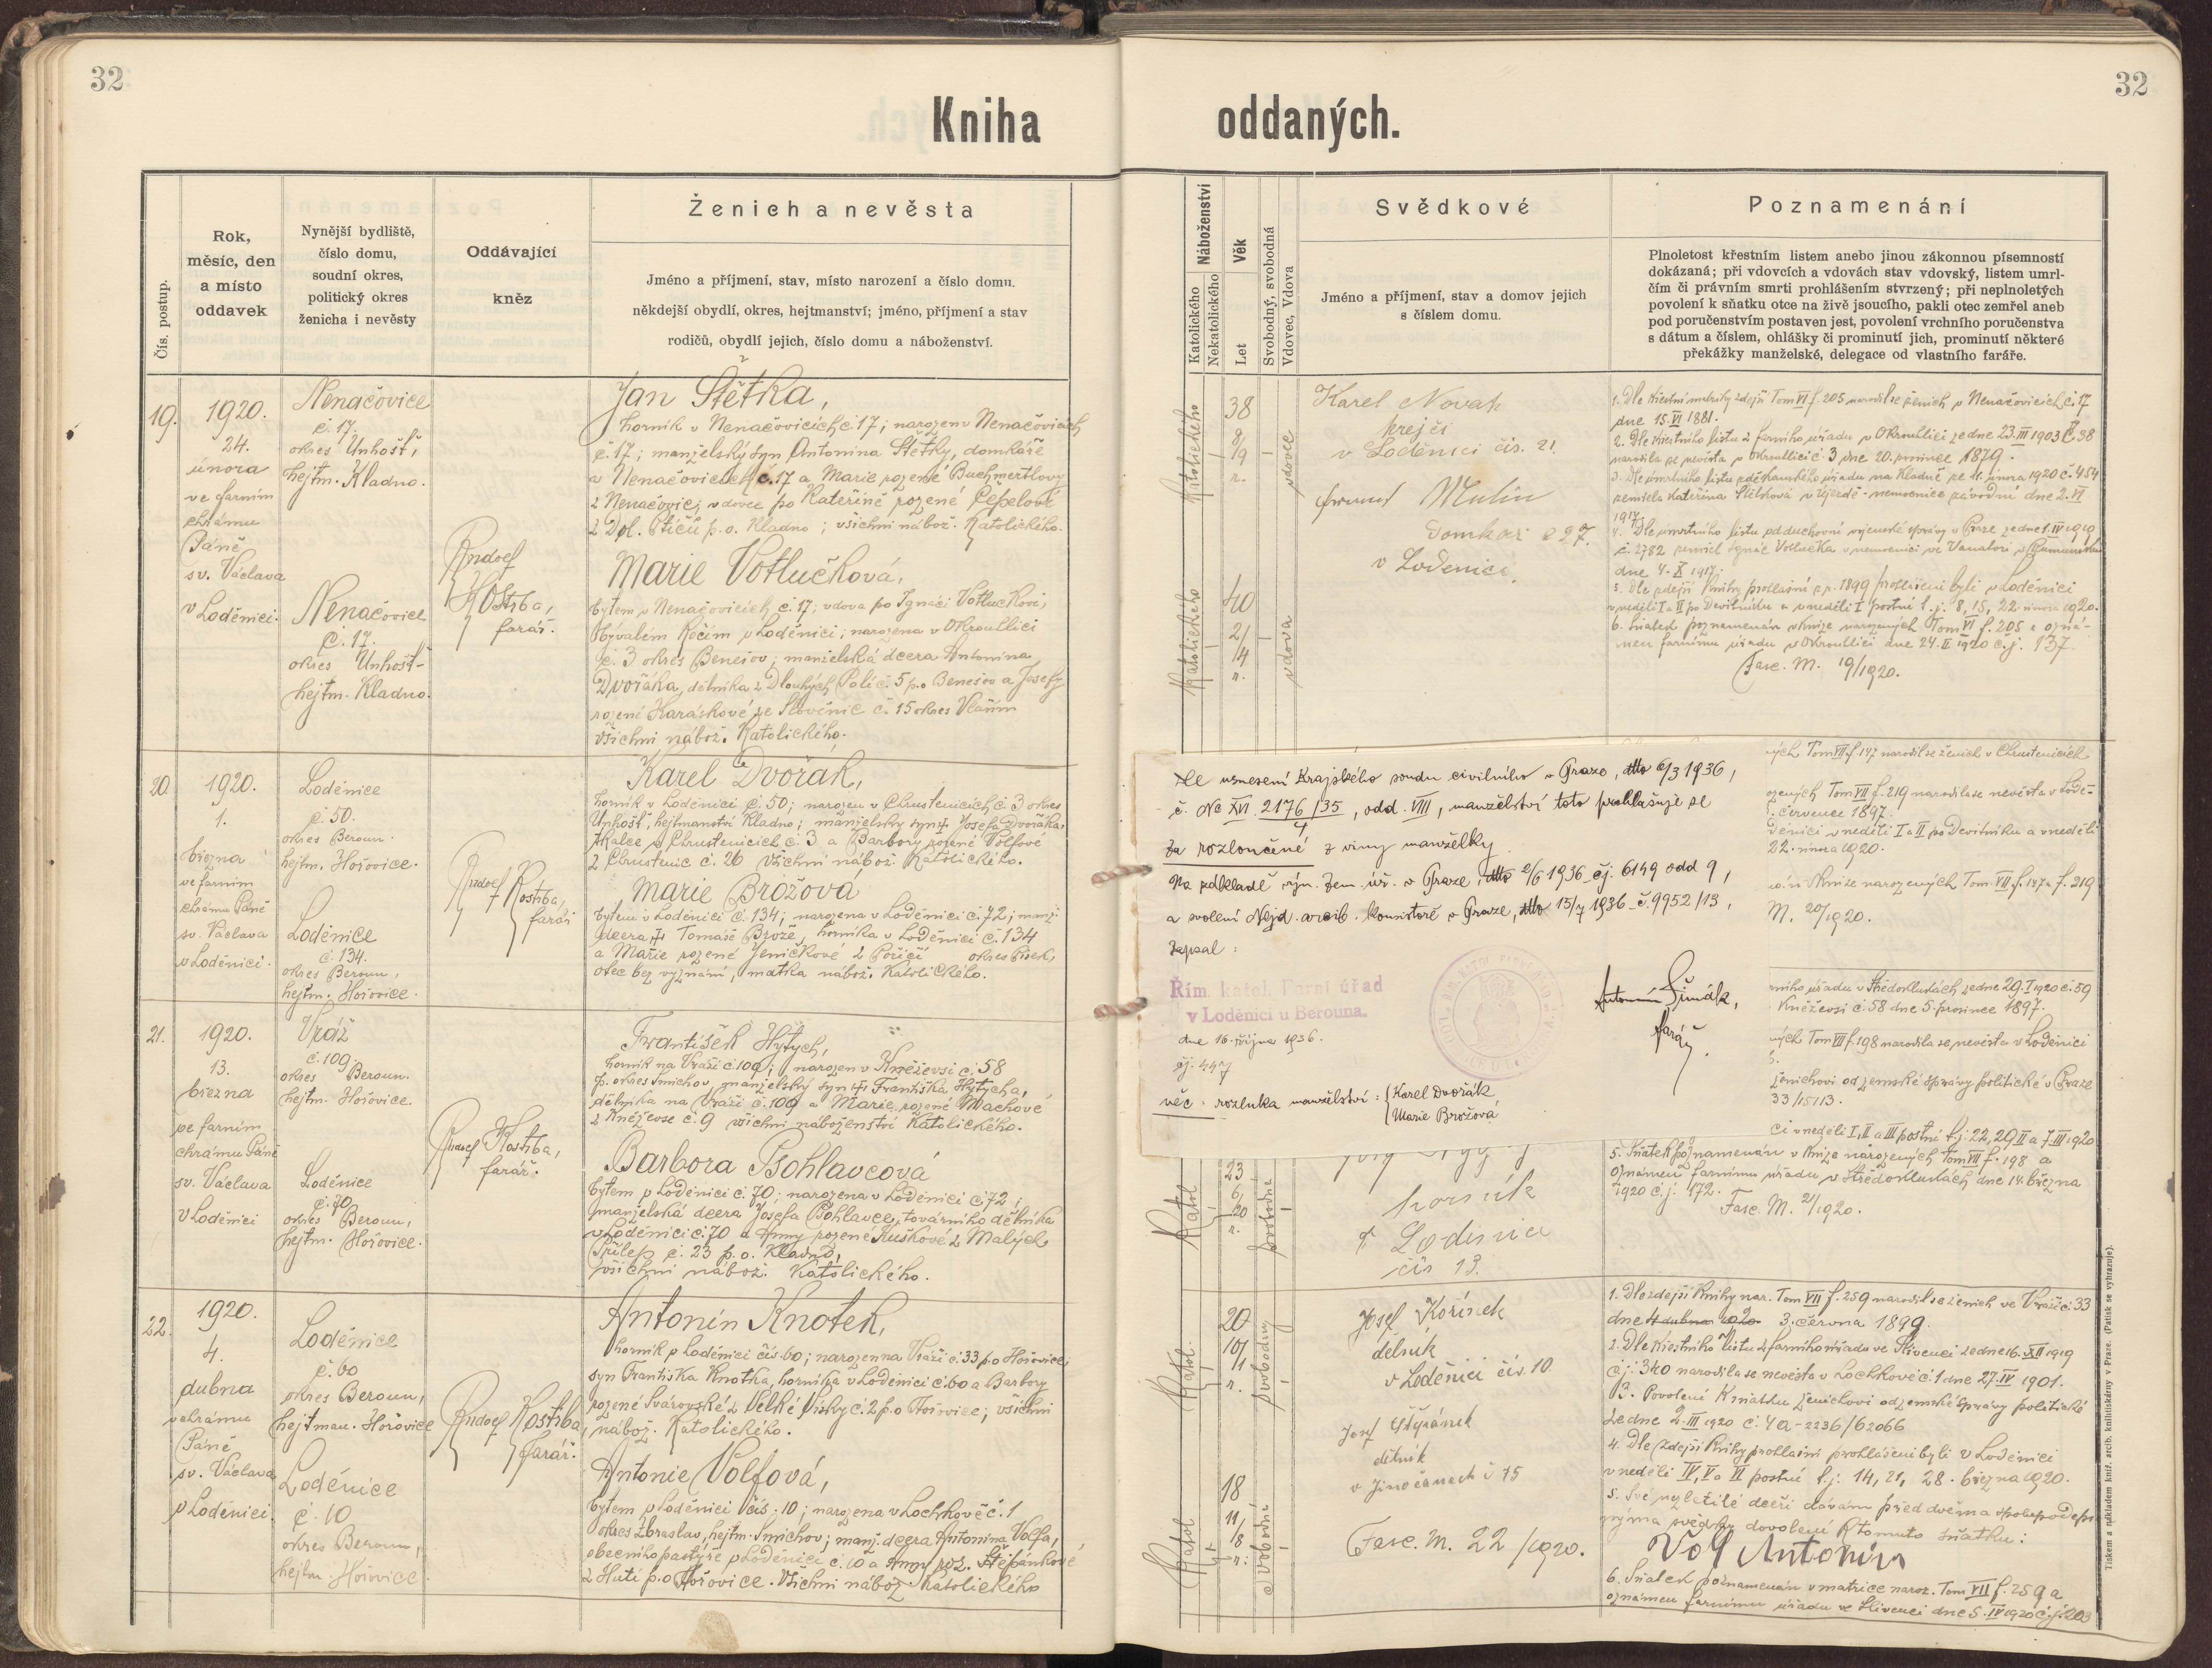 32
32
Kniha
oddaných.
Čís. postup.
Rok,
měsíc, den
a místo
oddavek
Nynější bydliště,
číslo domu,
soudní okres,
politický okres
ženicha i nevěsty
Oddávající
kněz
Ženich a nevěsta
Jméno a příjmení, stav, místo narození a číslo domu.
někdejší obydlí, okres, hejtmanství; jméno, příjmení a stav
rodičů, obydlí jejich, číslo domu a náboženství.
Náboženství
Katolického
Nekatolického
Věk
Let
Svobodný, svobodná
Vdovec, Vdova
Svědkové
Jméno a příjmení, stav a domov jejich
s číslem domu.
Poznamenání
Plnoletost křestním listem anebo jinou zákonnou písemností
dokázaná; při vdovcích a vdovách stav vdovský, listem umrl-
čím či právním smrti prohlášením stvrzený; při neplnoletých
povolení k sňatku otce na živě jsoucího, pakli otec zemřel aneb
pod poručenstvím postaven jest, povolení vrchního poručenstva
s dátum a číslem, ohlášky či prominutí jich, prominutí některé
překážky manželské, delegace od vlastního faráře.
19.
1920.
24.
února
ve farním
chrámu
Páně
sv. Václava
v Loděnici.
Nenačovice
č. 17.
okres Unhošť,
hejtm. Kladno.
Nenačovice
č. 17.
okres Unhošť-
hejtm. Kladno.
Rudolf
Kostrba,
farář.
Jan Štětka,
horník v Nenačovicích č. 17; narozen v Nenačovicích
č. 17; manželský syn Antonína Štětky, domkáře
v Nenačovicích č. 17 a Marie rozené Buchmertlovy
z Nenačovic; vdovec po Kateřině rozené Čepelově
z Dol. Ptičů p. o. Kladno; všichni nábož. Katolického.
Marie Votlučková,
bytem v Nenačovicích č. 17; vdova po Ignáci Votlučkovi,
bývalém Kočím v Loděnici; narozena v Okrouhlici
č. 3 okres Benešov; manželská dcera Antonína
Dvořáka, dělníka z Dlouhých Polí č. 5 p. o Benešov a Josefy
rozené Karáskové ze Slověnic č. 15 okres Vlašim
všichni nábož. Katolického.
Katolického
38
8/9
r.
vdovec
Katolického
40
2/4
r.
vdova
Karel Novak
krejči
v Loděnici čís. 21.
Mulin
Domkar č 27.
v Lodenici.
1. Dle křestní matriky zdejší Tom VI f. 205 narodil se ženich v Nenačovicích č. 17
dne 15. VI 1881.
2. Dle křestního listu z farního úřadu v Okrouhlici ze dne 23. III 1903 č. 38
narodila se nevěsta v Okrouhlici č. 3 dne 20. prosince 1879.
3. Dle úmrtního listu z děkanského úřadu na Kladně ze 11. února 1920 č. 454
zemřela Kateřina Štětková v Újezdě - nemocnice závodní dne 2. VI
1917.
4. Dle úmrtního listu od duchovní vojenské správy v Praze ze dne 1. IV 1919
č. 2782 zemřel Ignác Votlučka v nemocnici ve Vanatori v Rumunsku
dne 4. X 1917.
5. Dle zdejší Knihy prohlášní z r. 1899 prohlášeni byli v Loděnici
v neděli I a II po Devítníku a v neděli I postní t. j. 8, 15, 22 února 1920.
6. Sňatek poznamenán v knize narozených Tom VI f. 205 a ozná-
men farnímu úřadu v Okrouhlici dne 24. II 1920 č. j. 137.
Fasc. M. 19/1920.
20.
1920.
1.
března
ve farním
chrámu Páně
sv. Václava
v Loděnici.
Loděnice
č. 50.
okres Beroun.
hejtm. Hořovice.
Loděnice
č. 134.
okres Beroun,
hejtm. Hořovice.
Rudolf Kostrba,
farář
Karel Dvořák,
horník v Loděnici č. 50; narozen v Chrustenicích č. 3 okres
Unhošť, hejtmanství Kladno; manželský syn † Josefa Dvořáka,
tkalce v Chrustenicích č. 3 a Barbory rozené Volfové
z Chrustenic č. 26 všichni nábož. Katolického.
Marie Brožová
bytem v Loděnici č. 134; narozena v Loděnici č. 72; manž.
dcera † Tomáše Brože, horníka v Loděnici č. 134
a Marie rozené Jeničkové z Poříčí okres Písek,
otec bez vyznání, matka nábož. Katolického.
Dle usnesení Krajského soudu civilního v Praze, dtto 6/3 1936,
č. Nc XVI 2176/35, odd. VIII, manželství toto prohlašuje se
4
za rozloučené z viny manželky.
Na základě výn. zem. úř. v Praze, dtto 2/6 1936 čj. 6149 odd 9,
a svolení Nejd. arcib. konsistoře v Praze, dtto 15/7 1936 č. 9952/13,
zapsal:
Antonín Šimák,
farář.
Řím. katol. Farní úřad
v Loděnici u Berouna.
dne 16. října 1936.
čj. 447
věc: rozluka manželství: Karel Dvořák
Marie Brožová
ných Tom VII f. 147 narodil se ženich v Chrustenicích
ozených Tom VII f. 219 narodila se nevěsta v Lodě-
. července 1897.
děnici v neděli I a II po Devítníku a v neděli
22. února 1920.
v Knize narozených Tom. VII. f. 147 a f. 219
M. 20/1920.
21.
1920.
13.
března
ve farním
chrámu Páně
sv. Václava
v Loděnici
Vráž
č. 109.
okres Beroun.
hejtm. Hořovice.
Loděnice
č. 70,
okres Beroun,
hejtm. Hořovice.
Rudolf Kostrba,
farář.
František Hytych,
horník na Vráži č. 109; narozen v Kněževsi č. 58
p. okres Smíchov, manželský syn † Františka Hytycha,
dělníka na Vráži č. 109 a Marie rozené Machové
z Kněževse č. 9 všichni náboženství Katolického.
Barbora Pohlavcová
bytem v Loděnici č. 70; narozena v Loděnici č. 72;
manželská dcera Josefa Pohlavce, továrního dělníka
v Loděnici č. 70 a Anny rozené Kuškové z Malých
Přílep č. 23 p. o. Kladno,
všichni nábož. Katolického.
Katol
23
6/20
r.
svobodná
horník
z Loděnice
čís 13.
rního úřadu v Středoklukách ze dne 29. I 1920 č. 59
Kněževsi č. 58 dne 5. prosince 1897.
ných Tom VII f. 198 narodila se nevěsta v Loděnici
ženichovi od zemské správy politické v Praze
33/15113.
ci v neděli I, II a III postní t. j. 22, 29 II a 7. III 1920
5. Sňatek poznamenán v Knize narozených Tom VII f. 198 a
oznámen farnímu úřadu v Středoklukách dne 14. března
1920 č. j. 172.
Fasc. M. 21/1920.
22.
1920.
4.
dubna
v chrámu
Páně
sv. Václava
v Loděnici.
Loděnice
č. 60
okres Beroun,
hejtman. Hořovice
Loděnice
č. 10
okres Beroun,
hejtm. Hořovice.
Rudolf Kostrba,
farář.
Antonín Knotek,
horník v Loděnici čís. 60; narozen na Vráži č. 33 p. o Hořovice;
syn Františka Knotka, horníka v Loděnici č. 60 a Barbory
rozené Svárovské z Velké Vísky č. 2 p. o Hořovice; všichni
nábož. Katolického.
Antonie Volfová,
bytem v Loděnici čís. 10; narozena v Lochkově č. 1
okres Zbraslav, hejtm. Smíchov; manž. dcera Antonína Volfa,
obecního pastýře v Loděnici č. 10 a Anny roz. Štěpánkové
z Hutí p. o Hořovice. Všichni nábož. Katolického
Katol.
20
10/1
r.
svobodný
Katol
18
11/18
r.
svobodná
Josef Kořínek
dělník
v Loděnici čís 10.
Josef Štýránek
dělník
v Jinočanech č 75
Fasc. M. 22/1920.
1. Dle zdejší Knihy nar. Tom VII f. 259 narodil se ženich ve Vráži č. 33
dne 4 dubna 1920 3. června 1899.
2. Dle křestního listu z farního úřadu ve Slivenci ze dne 16. XII 1919
č. j. 340 narodila se nevěsta v Lochkově č. 1 dne 27. IV 1901.
3. Povolení K sňatku ženichovi od zemské správy politické
ze dne 2. III 1920 č. 4a-2236/62066
4. Dle zdejší Knihy prohlášní prohlášeni byli v Loděnici
v neděli IV, V a VI postní t. j. 14, 21, 28. března 1920.
5. Své nezletilé dceři dávám před dvěma spolupodeps
nýma svědky dovolení K tomuto sňatku:
Volf Antonín
6. Sňatek poznamenán v matrice naroz. Tom VII f. 259 a
oznámen farnímu úřadu ve Slivenci dne 5. IV 1920 č. j. 203
Tiskem a nákladem kníž. arcib. knihtiskárny v Praze. (Patisk se vyhrazuje).